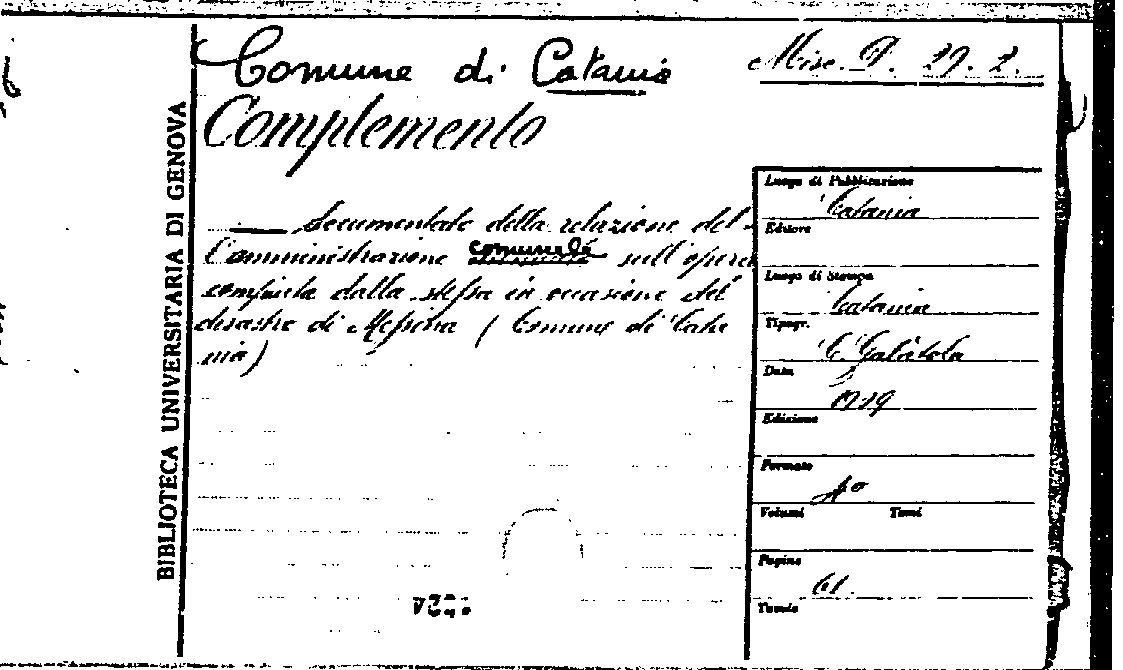 Comune di Catania
Misc. D. 29. 2.
Complemento
BIBLIOTECA UNIVERSITARIA DI GENOVA
Documentale della relazione del-
l'amministrazione comunale sull'opera
compiuta dalla stessa in occasione del
disastro di Messina (Comune di Cata
nia)
Luogo di Pubblicazione
Catania
Editore
Luogo di Stampa
Catania
Tipogr.
C. Galàtola
Data
Edizione
Formato
4º
Volumi Tomi
Pagine
61.
Tavole